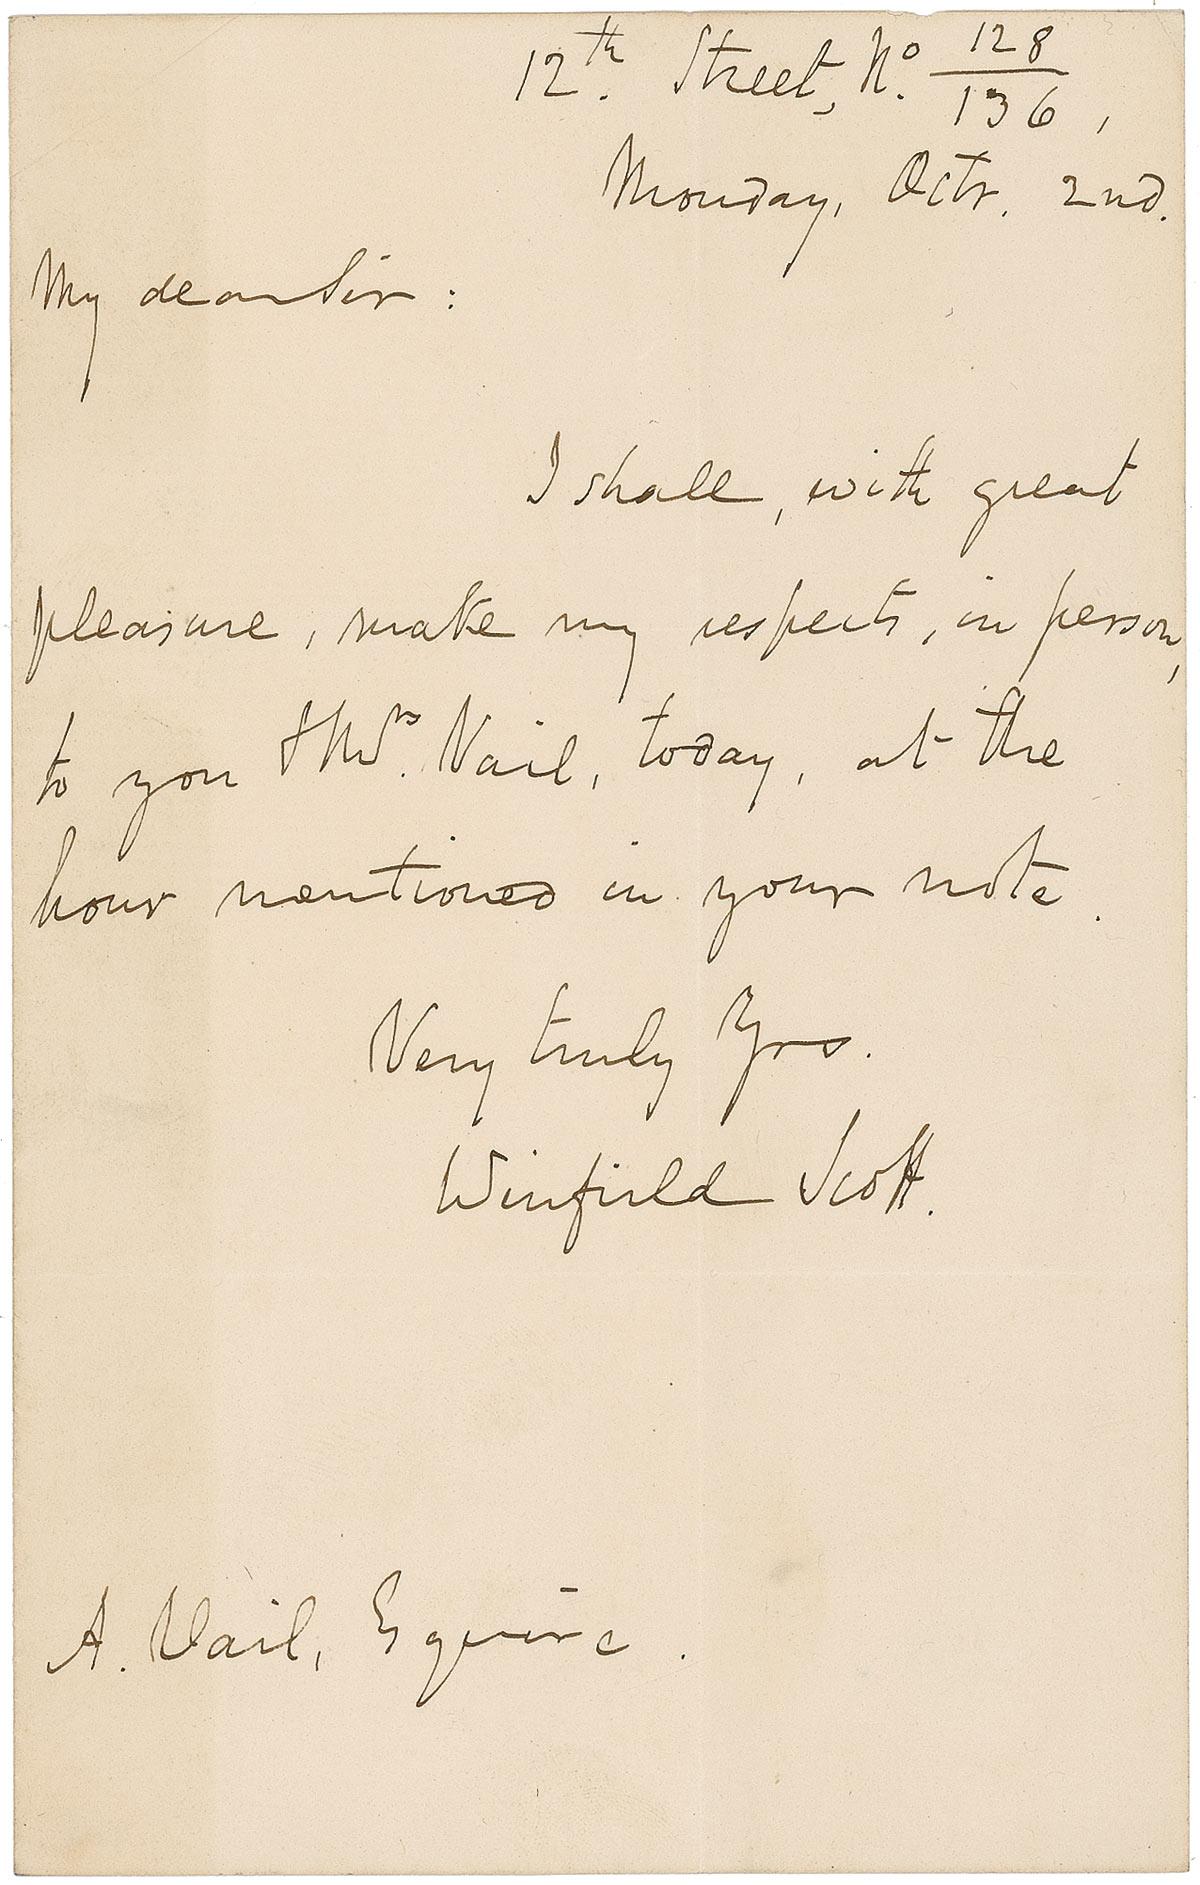 12th. Street, No. 128/136,
Monday, Octr. 2nd.
My dear Sir:
I shall, with great
pleasure, make my respects, in person,
to you & Mrs. Vail, today, at the
hour mentioned in your note.
Very truly Yrs.
Winfield Scott.
A. Vail, Esquire.